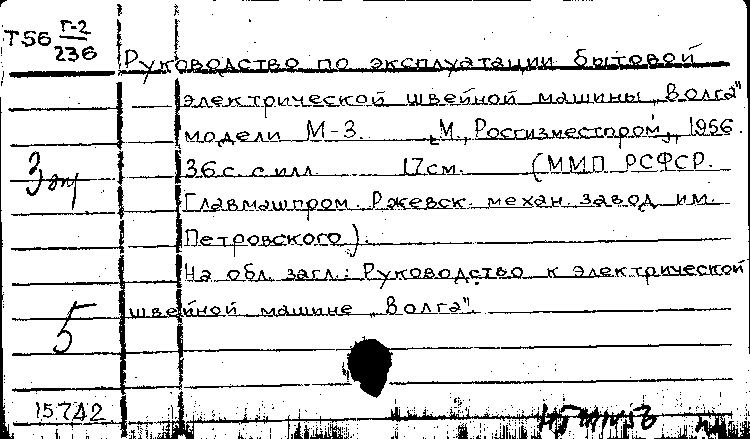 Т56 Г-2
236
Руководство по эксплуатации бытовой
электрической швейной машины „Волга"
модели М-3. М., Росгизместпром, 1956.
36 с. с илл. 17см. (ММП РСФСР.
Главмашпром. Ржевск. механ. завод им.
Петровского).
На обл. загл.: Руководство к электрической
швейной машине „Волга".
5
15742